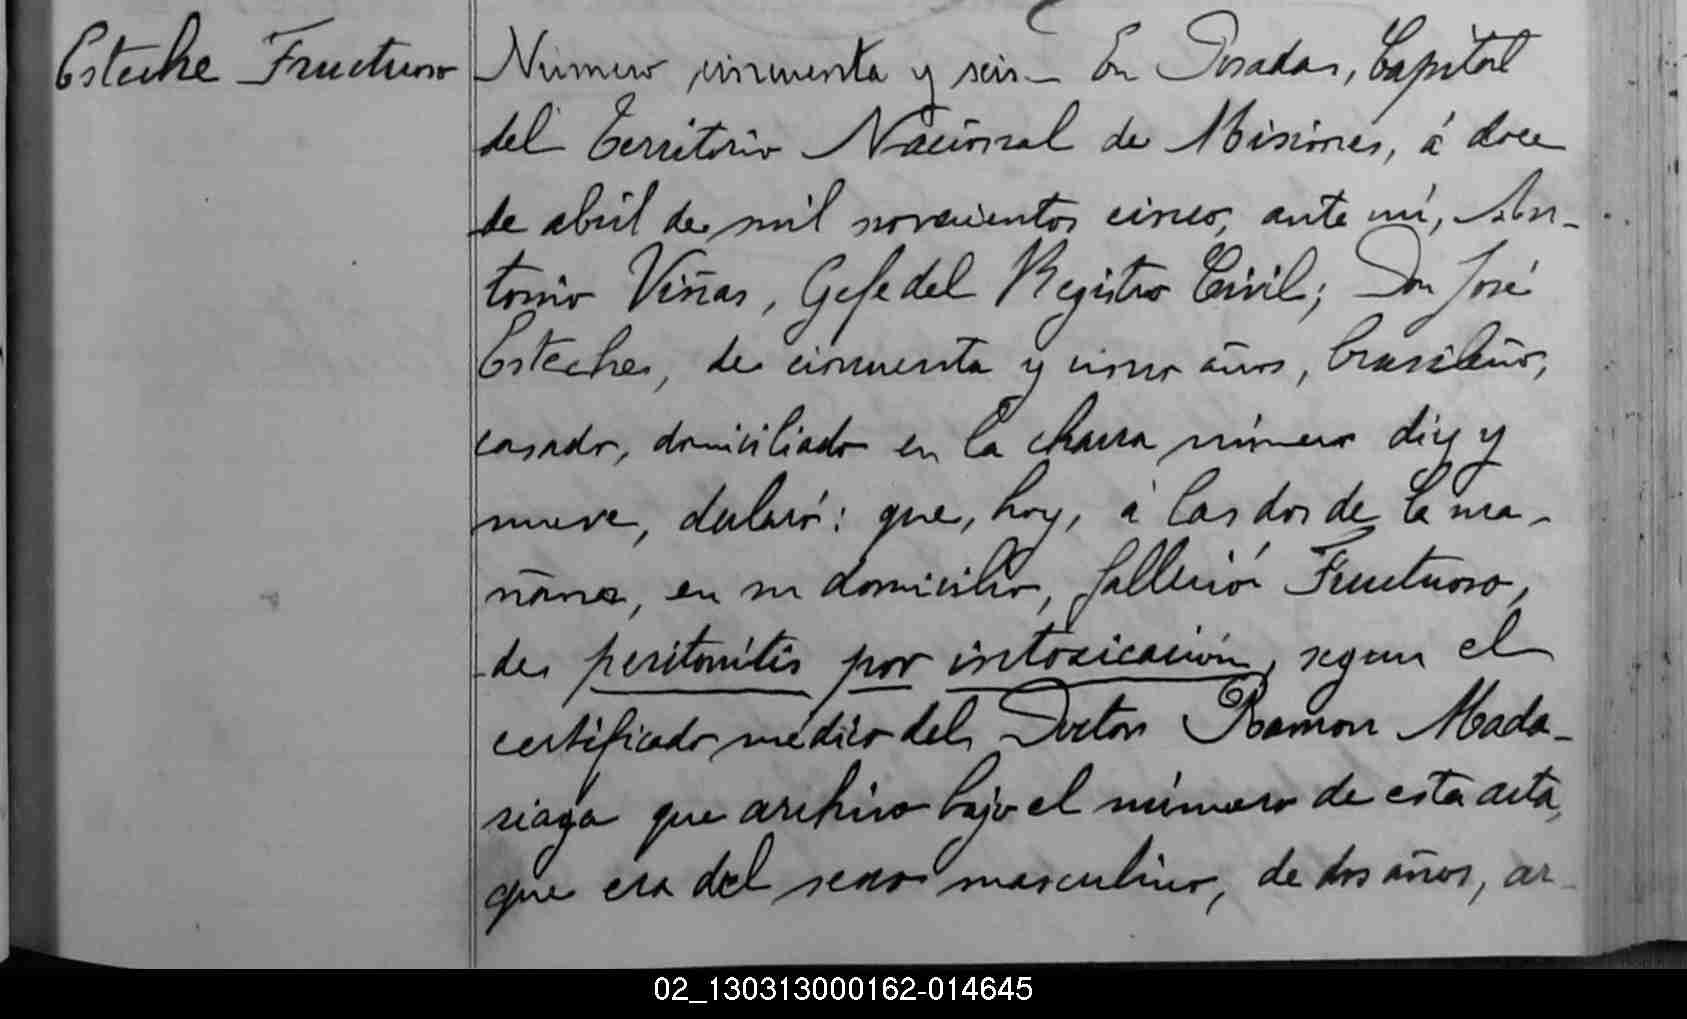 Esteche Fructuoso
Número cincuenta y seis — En Posadas, Capital
del Territorio Nacional de Misiones, á doce
de abril de mil novecientos cinco, ante mí, An-
tonio Viñas, Gefe del Registro Civil; Don José
Esteche, de cincuenta y cinco años, brasileño,
casado, domiciliado en la chacra número diez y
nueve, declaró: que, hoy, á las dos de la ma-
ñana, en su domicilio, falleció Fructuoso,
de peritonitis por intoxicación, segun el
certificado médico del Doctor Ramon Mada-
riaga que archivo bajo el número de esta acta,
que era del sexo masculino, de dos años, ar-
02_130313000162-014645